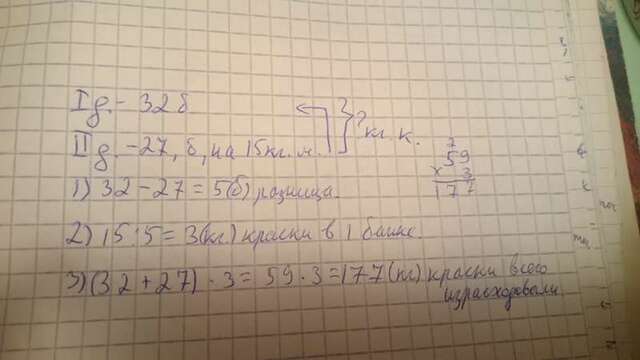 I д. - 32 б
II д. - 27, б, на 15 кг. м. } ? кг. к.
1) 32 - 27 = 5(б) разница.
2) 15 : 5 = 3(кг) краски в 1 банке.
3) (32 + 27) · 3 = 59 · 3 = 177 (кг) краски всего
израсходовали
7
59
× 3
177